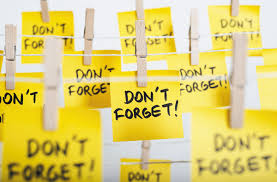 DON'T
FORGET!
DON'T
FORGET!
DON'T
FORGET!
DON'T
FORGET!
DON'T
DON'T
FORGET!
DON'T
FORGET!
DON'T
DON'T
FORGET!
DON'T
FORGET!
DON'T
FORGET!